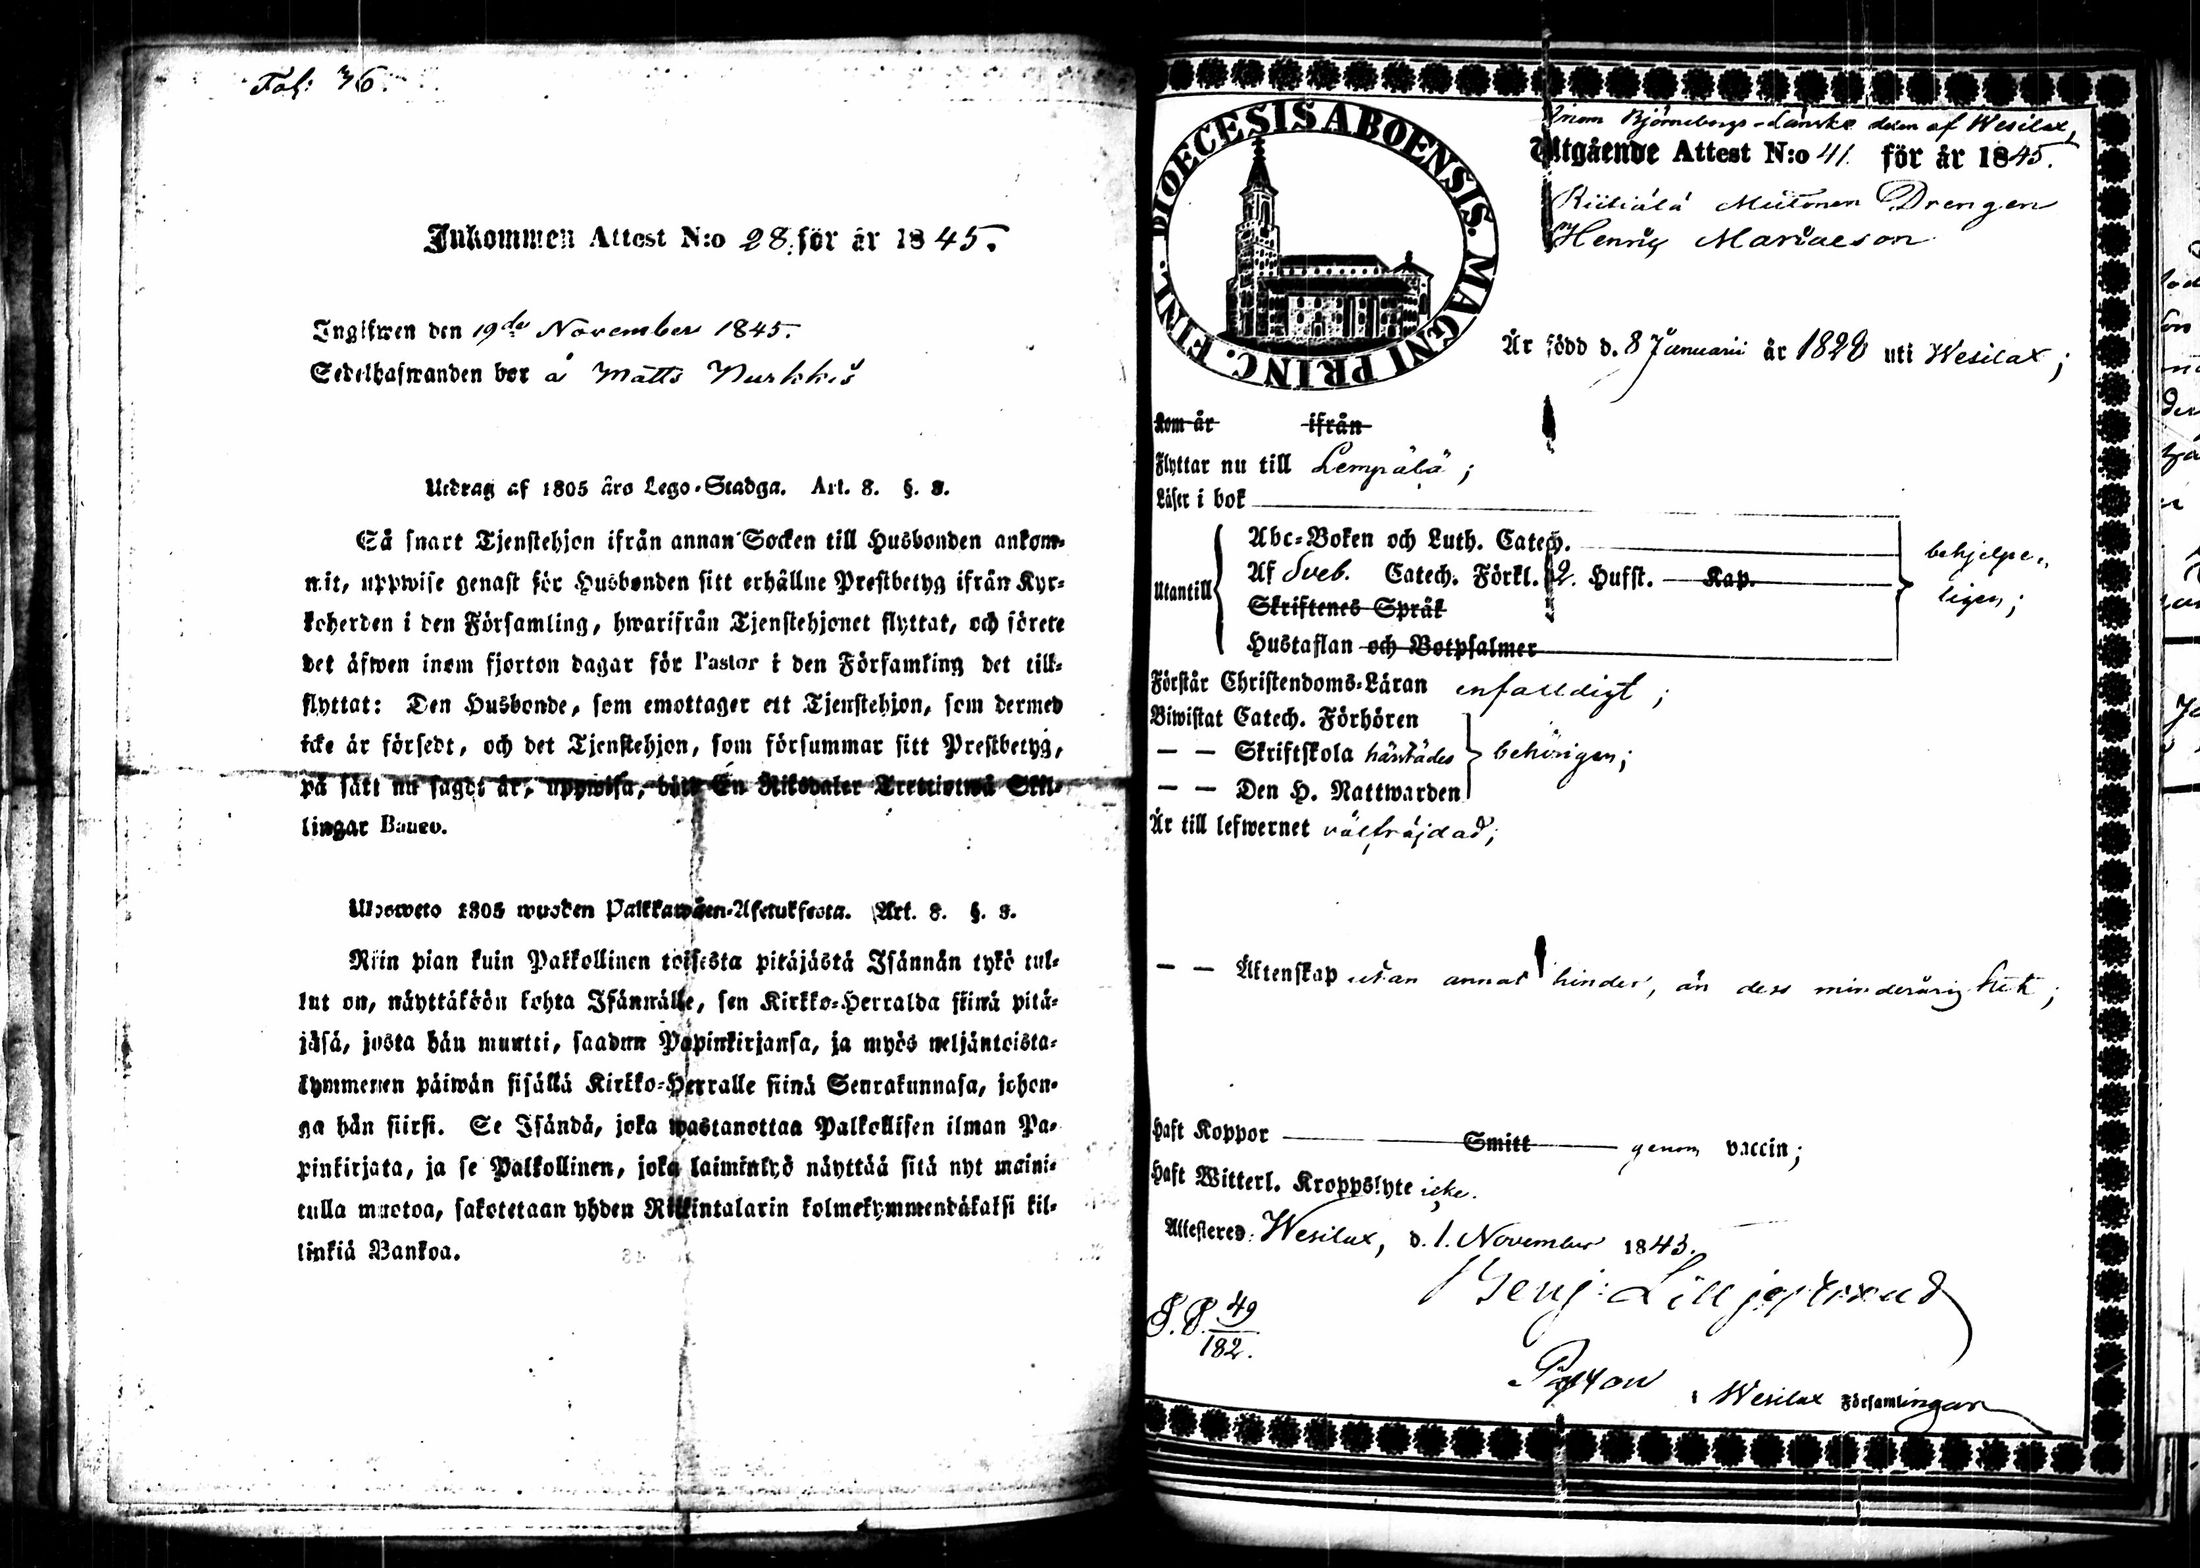 Fol: 36.
Inkommen Attest N:o 28. för år 1845.
Ingifwen den 19de November 1845.
Sedelhafwanden bor å Matts Nurkkis
Utdrag af 1805 års Lego-Stadga. Art. 8. §. 3.
Så snart Tjenstehjon ifrån annan Socken till Husbonden ankom-
mit, uppwise genast för Husbonden sitt erhållne Prestbetyg ifrån Kyr-
koherden i den Församling, hwarifrån Tjenstehjonet flyttat, och förete
det äfwen inom fjorton dagar för Pastor i den Församling det till-
flyttat: Den Husbonde, som emottager ett Tjenstehjon, som dermed
icke är försedt, och det Tjenstehjon, som försummar sitt Prestbetyg,
på sätt nu sagdt är, uppwisa, böte En Riksdaler Trettiotwå Skil-
lingar Banco.
Ulosweto 1805 wuoden Palkkawäen-Asetuksesta. Art. 8. §. 3.
Niin pian kuin Palkollinen toisesta pitäjästä Isännän tykö tul-
lut on, näyttäköön kohta Isännälle, sen Kirkko-Herralda siinä pitä-
jäsä, josta hän muutti, saadun Papinkirjansa, ja myös neljäntoista-
kymmenen päiwän sisällä Kirkko-Herralle siinä Seurakunnasa, johon-
ga hän siirsi. Se Isändä, joka wastanottaa Palkollisen ilman Pa-
pinkirjata, ja se Palkollinen, joka laiminlyö näyttää sitä nyt maini-
tulla muotoa, sakotetaan yhden Riikintalarin kolmekymmendäkaksi kil-
linkiä Bankoa.
DIOECESIS ABOENSIS. MAGNI PRINC. FINL.
Inom Björneborgs-Länske delen af Wesilax,
Utgående Attest N:o 41. för år 1845.
Drengen
Henrig Mariaeson
Är född d. 8 Januarii år 1828 uti Wesilax;
Kom år ifrån
Flyttar nu till Lempälä;
Läser i bok
Abc-Boken och Luth. Catech.
Utantill Af Sveb. Catech. Förkl. 2. Hufst. Kap. behjelpe-
Skriftenes Språk ligen;
Hustaflan och Botpsalmer
Förstår Christendoms-Läran enfaldigt;
Biwistat Catech. Förhören
— — Skriftskola härstädes behörigen;
— — Den H. Nattwarden
Är till lefwernet välfräjdad;
— — Äktenskap utan annat hinder, än dess minderårighet;
Haft Koppor Smitt genom vaccin;
Haft Witterl. Kroppslyte icke.
Attesteres: Wesilax, d. 1. November 1845.
Benj: Lilljestrand
S.B. 49
182.
Pastor i Wesilax Församlingar